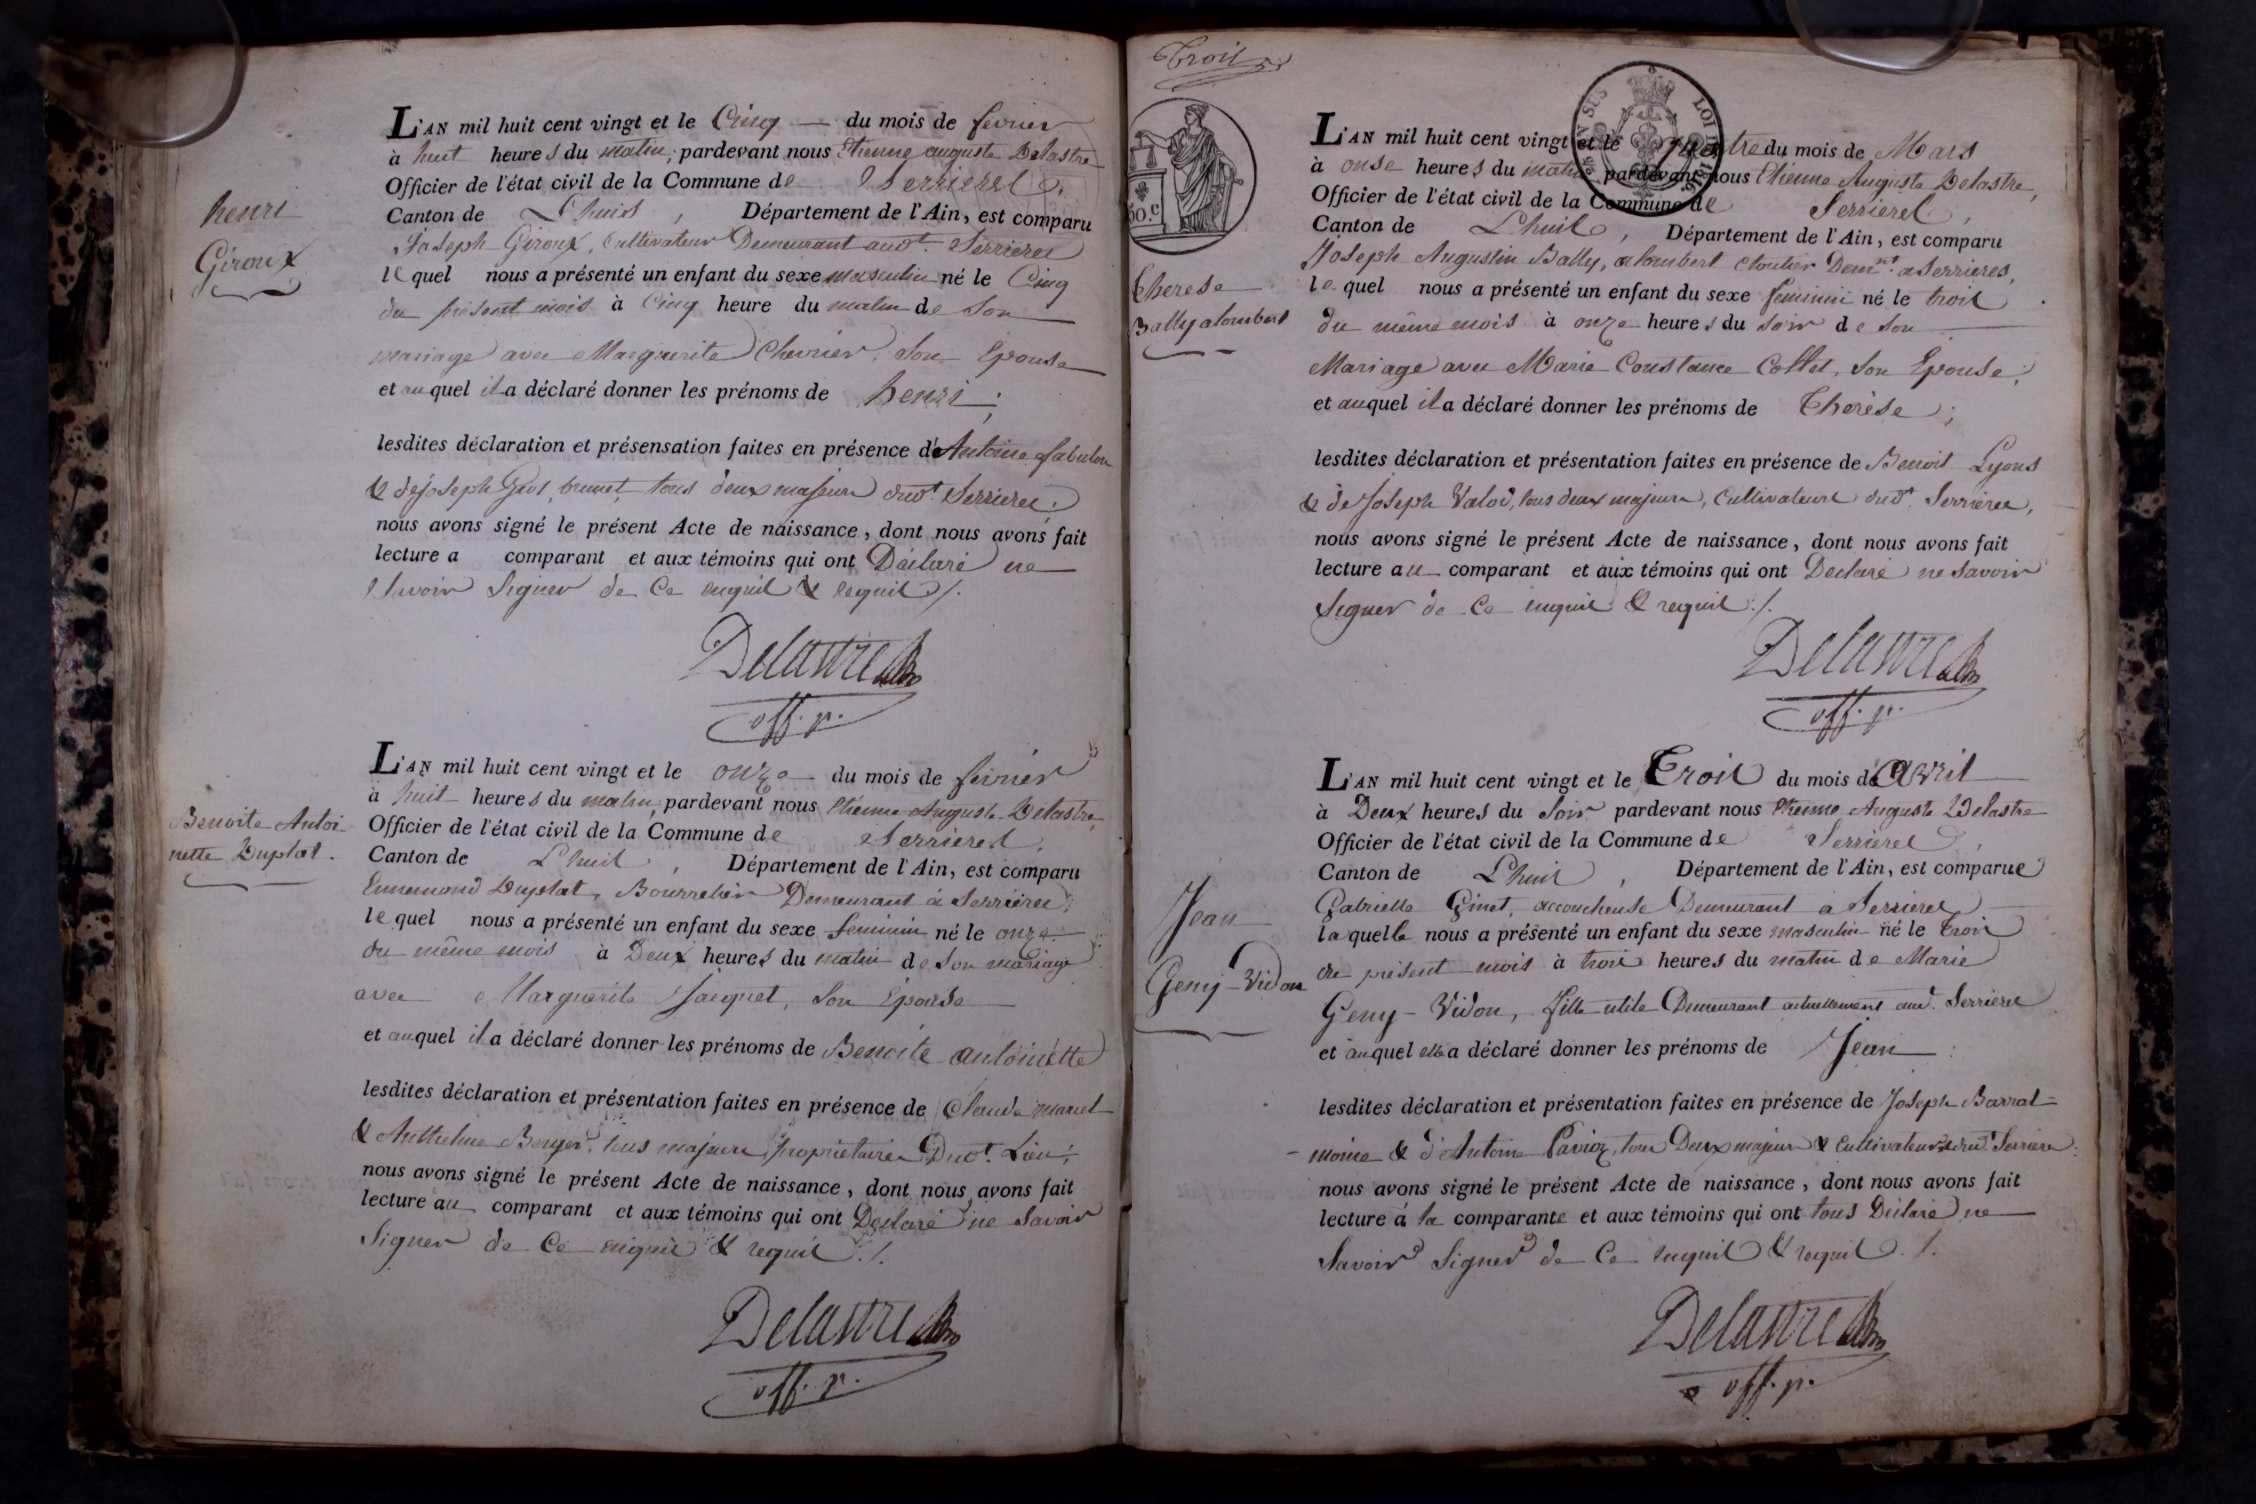 henri
Giroux
L'AN mil huit cent vingt et le Cinq du mois de fevrier
à huit heures du matin, pardevant nous Etienne auguste Delastre
Officier de l'état civil de la Commune de Serrieres
Canton de Lhuis, Département de l'Ain, est comparu
Joseph Giroux, Cultivateur Demeurant audt. Serrieres
le quel nous a présenté un enfant du sexe masculin né le Cinq
du présent mois à Cinq heure du matin de Son
mariage avec Marguerite Chevrier, Son Epouse
et auquel il a déclaré donner les prénoms de henri;
lesdites déclaration et présensation faites en présence d'Antoine
& de joseph Gros brunet tous deux majeurs dudt. Serrieres.
nous avons signé le présent Acte de naissance, dont nous avons fait
lecture a comparant et aux témoins qui ont Déclaré ne
Savoir Signer de Ce enquis & requis ./.
Delastre
off. p.
Benoite Antoi-
nette Duplat.
L'AN mil huit cent vingt et le onze du mois de fevrier
à huit heures du matin, pardevant nous Etienne Auguste Delastre,
Officier de l'état civil de la Commune de Serrieres,
Canton de Lhuis, Département de l'Ain, est comparu
Ennemond Duplat, Bourrelier Demeurant à Serrieres,
le quel nous a présenté un enfant du sexe feminin né le onze
du même mois à Deux heures du matin de Son mariage
avec Marguerite Jacquet, Son Epouse
et auquel il a déclaré donner les prénoms de Benoite antoinette
lesdites déclaration et présentation faites en présence de Claude marcel
& Anthelme Berger, tous majeurs, propriétaires Dudt. Lieu;
nous avons signé le présent Acte de naissance, dont nous avons fait
lecture au comparant et aux témoins qui ont Déclaré ne Savoir
Signer de Ce enquis & requis ./.
Delastre
off. p.
Trois
50. c
Therese
Bally alombert
L'AN mil huit cent vingt et le quatre du mois de Mars
à onse heures du matin pardevant nous Etienne Auguste Delastre,
Officier de l'état civil de la Commune de Serrieres,
Canton de Lhuis, Département de l'Ain, est comparu
Joseph Augustin Bally, alombert cloutier Demt. a Serrieres,
le quel nous a présenté un enfant du sexe feminin né le trois
du même mois à onze heures du soir de Son
Mariage avec Marie Constance Collet, Son Epouse;
et auquel il a déclaré donner les prénoms de Therèse;
lesdites déclaration et présentation faites en présence de Benoit Lyons
& de Joseph Valod, tous deux majeurs, Cultivateurs dudt. Serrieres,
nous avons signé le présent Acte de naissance, dont nous avons fait
lecture au comparant et aux témoins qui ont Déclaré ne Savoir
Signer de Ce enquis & requis ./.
Delastre
off. p.
Jean
Geny-Vidon
L'AN mil huit cent vingt et le Trois du mois d'avril
à Deux heures du Soir pardevant nous Etienne Auguste Delastre
Officier de l'état civil de la Commune de Serrieres,
Canton de Lhuis, Département de l'Ain, est comparue
Gabrielle Ginet, accoucheuse Demeurant a Serrieres
laquelle nous a présenté un enfant du sexe masculin né le trois
du présent mois à trois heures du matin de Marie
Geny-Vidon, fille Demeurant actuellement aud. Serrieres
et auquel elle a déclaré donner les prénoms de Jean:
lesdites déclaration et présentation faites en présence de Joseph Barral=
moine & d'Antoine Pavioz, tous Deux majeurs & Cultivateurs dudt. Serrieres:
nous avons signé le présent Acte de naissance, dont nous avons fait
lecture à la comparante et aux témoins qui ont tous Déclaré ne
Savoir Signer de Ce enquis & requis ./.
Delastre
off. p.